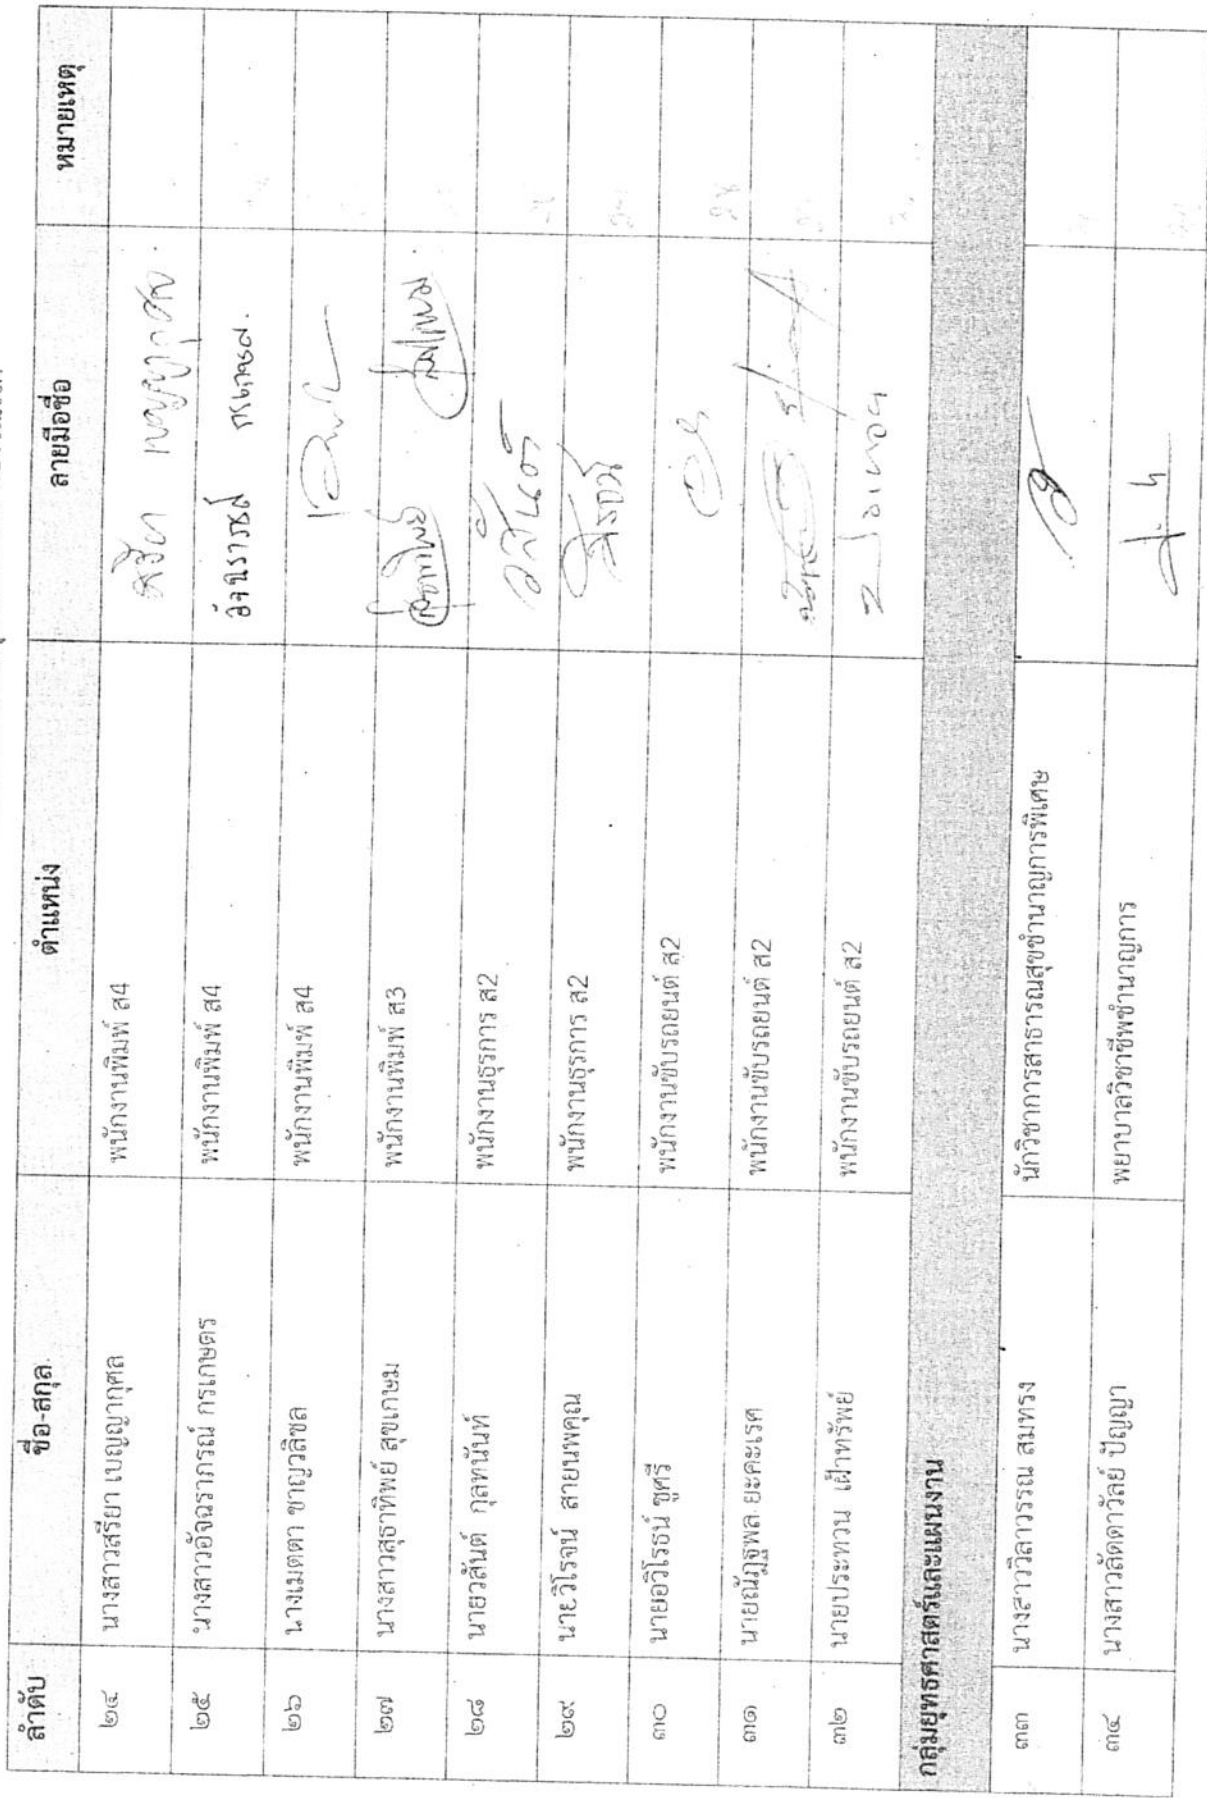 ลำดับ ชื่อ-สกุล ตำแหน่ง ลายมือชื่อ หมายเหตุ
๒๔ นางสาวสริยา เบญญากุศล พนักงานพิมพ์ ส4
๒๕ นางสาวอัจฉราภรณ์ กรเกษตร พนักงานพิมพ์ ส4
๒๖ นางเมตตา ชาญวลิชล พนักงานพิมพ์ ส4
๒๗ นางสาวสุธาทิพย์ สุขเกษม พนักงานพิมพ์ ส3 สุธาทิพย์ สุขเกษม
๒๘ นายวสันต์ กุลทนันท์ พนักงานธุรการ ส2 วสันต์
๒๙ นายวิโรจน์ สายนพคุณ พนักงานธุรการ ส2
๓๐ นายอวิโรธน์ ชูศรี พนักงานขับรถยนต์ ส2
๓๑ นายณัฏฐพล ยะคะเรศ พนักงานขับรถยนต์ ส2
๓๒ นายประทวน เฝ้าทรัพย์ พนักงานขับรถยนต์ ส2
กลุ่มยุทธศาสตร์และแผนงาน
๓๓ นางสาววิลาวรรณ สมทรง นักวิชาการสาธารณสุขชำนาญการพิเศษ
๓๔ นางสาวลัดดาวัลย์ ปัญญา พยาบาลวิชาชีพชำนาญการ